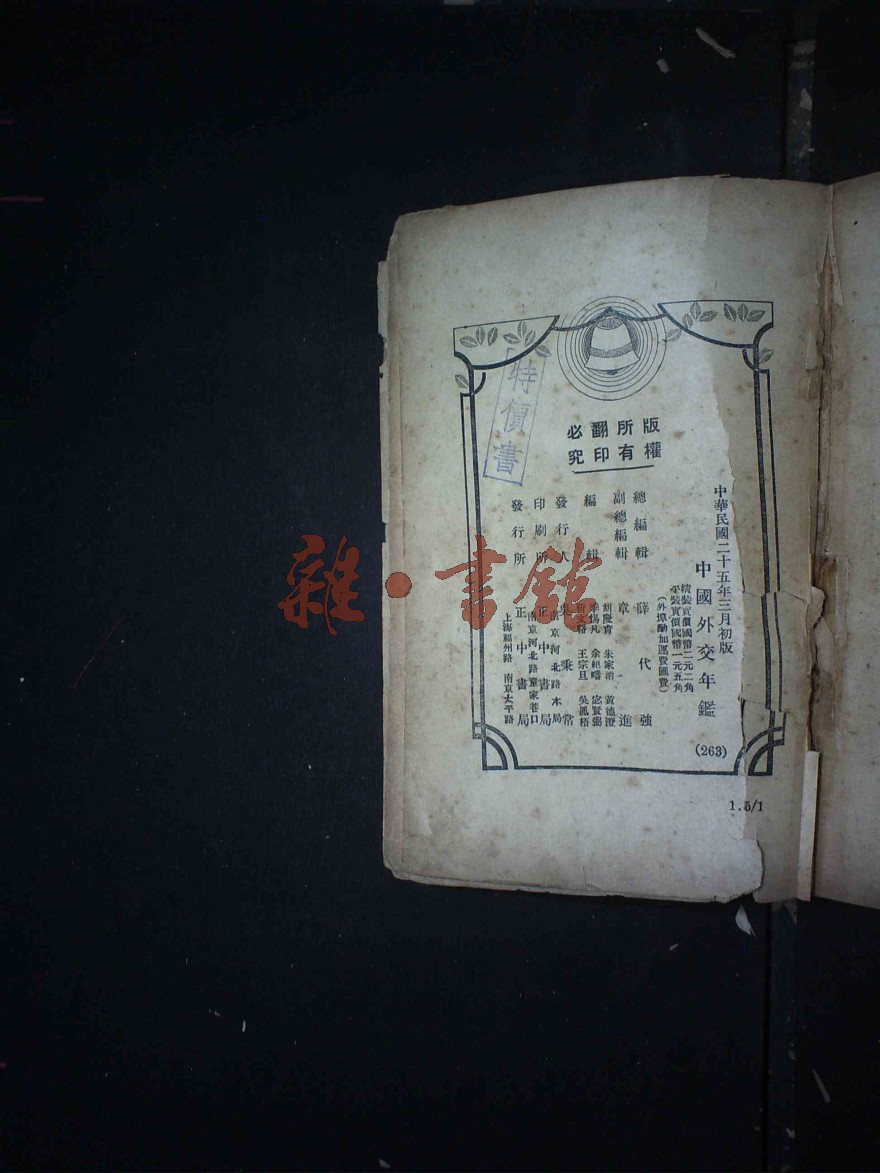 特價書
版權
所有
翻印
必究
中華民國二十五年三月初版
中國外交年鑑
(263)
精裝實價國幣二元二角
平裝實價國幣一元五角
(外埠酌加運費匯費)
總編輯 薛代強
副總編輯 章進
編輯 胡慶育 朱家治 黃德澄
余紹疇
王宗旦 吳鳳梧
發行人 吳秉常
南京河北路本局
印刷所 正中書局
南京河北路童家巷口
發行所 正中書局
上海福州路 南京太平路
1.5/1
雜·書館